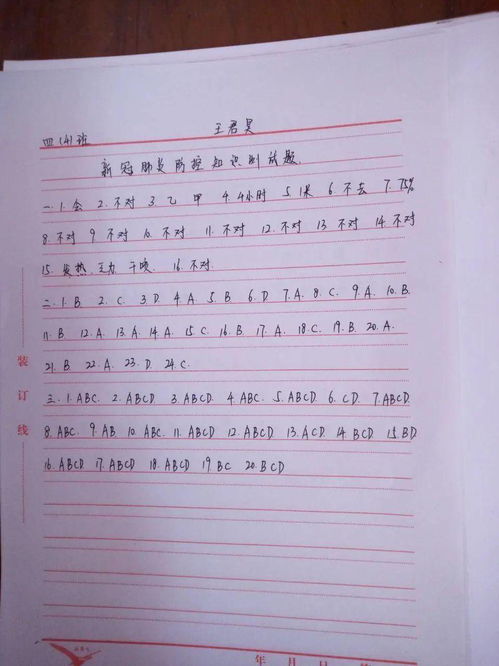 四(4)班 王君昊
新冠肺炎防控知识测试题.
一.1.会 2.不对 3.乙 甲 4.4小时 5.1米 6.不去 7.75%
8.不对 9.不对 10.不对 11.不对 12.不对 13.不对 14.不对
15.发热.乏力.干咳. 16.不对.
二.1.B. 2.C. 3.D 4.A. 5.B 6.D 7.A. 8.C. 9.A. 10.B.
11.B 12.A. 13.A. 14.A 15.C 16.B 17.A. 18.C. 19.B. 20.A.
21.B 22.A. 23.D. 24.C.
三.1.ABC. 2.ABCD 3.ABCD. 4.ABC. 5.ABCD 6.CD. 7.ABCD.
8.ABC. 9.AB. 10.ABC. 11.ABCD 12.ABCD 13.ACD 14.BCD 15.BD
16.ABCD 17.ABCD 18.ABCD 19.BC 20.BCD
装
订
线
年 月 日